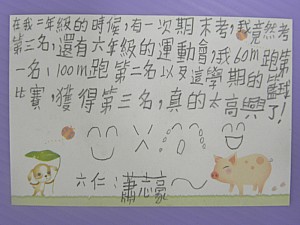 在我二年級的時候,有一次期末考,我竟然考
第三名,還有六年級的運動會,我60m跑第
一名,100m跑第二名以及這學期的籃球
比賽,獲得第三名,真的太高興了!
六仁:蕭志豪~